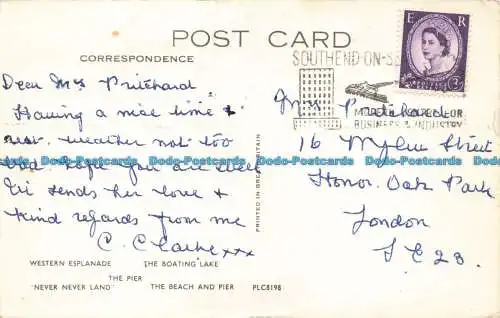 POST CARD
CORRESPONDENCE
E R
SOUTHEND-ON-SE
MODERN CENTRE FOR
BUSINESS & INDUSTRY
Dear Mrs Pritchard
Having a nice time &
rest. weather not too
bad hope you are well
sends her love &
kind regards from me
C. Clarke xxx
Mrs Pritchard
16 Street
Honor Oak Park
London
S E 23.
PRINTED IN GREAT BRITAIN
WESTERN ESPLANADE THE BOATING LAKE
THE PIER
"NEVER NEVER LAND" THE BEACH AND PIER PLC8198
Dodo-Postcards Dodo-Postcards Dodo-Postcards